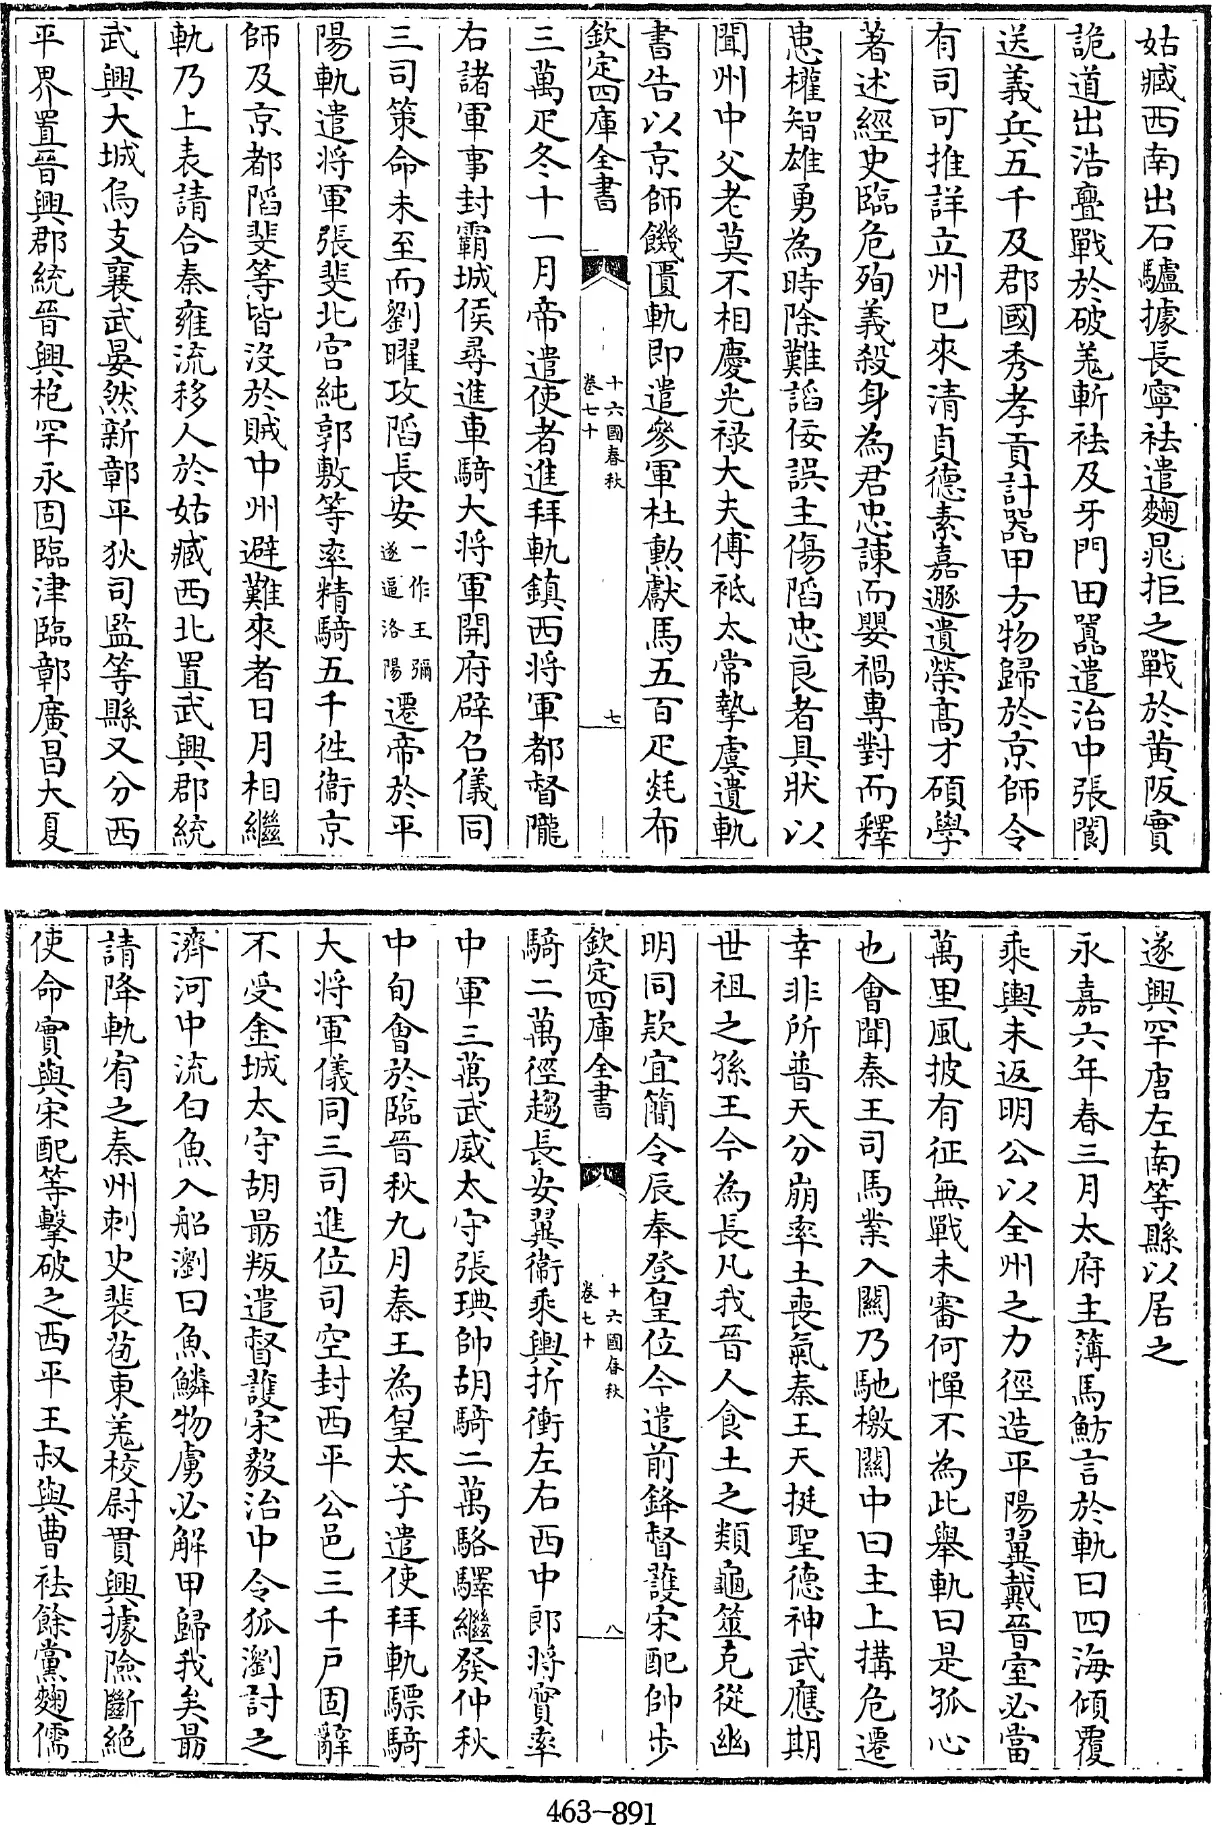 姑臧西南出石驢據長寧袪遣麴晁拒之戰於黄阪實
詭道出浩亹戰於破羌斬袪及牙門田囂遣治中張閬
送義兵五千及郡國秀孝貢計器甲方物歸於京師令
有司可推詳立州已來清貞德素嘉遯遺榮高才碩學
著述經史臨危殉義殺身為君忠諫而嬰禍專對而釋
患權智雄勇為時除難謟佞誤主傷陷忠良者具狀以
聞州中父老莫不相慶光禄大夫傅祗太常摯虞遺軌
書告以京師饑匱軌即遣參軍杜勲獻馬五百疋毯布
欽定四庫全書
十六國春秋
卷七十
七
三萬疋冬十一月帝遣使者進拜軌鎮西将軍都督隴
右諸軍事封霸城侯尋進車騎大将軍開府辟召儀同
三司策命未至而劉曜攻陷長安一作王彌遂逼洛陽遷帝於平
陽軌遣将軍張斐北宫純郭敷等率精騎五千徃衞京
師及京都陷斐等皆沒於賊中州避難來者日月相繼
軌乃上表請合秦雍流移人於姑臧西北置武興郡統
武興大城烏支襄武晏然新鄣平狄司監等縣又分西
平界置晉興郡統晉興枹罕永固臨津臨鄣廣昌大夏
遂興罕唐左南等縣以居之
永嘉六年春三月太府主簿馬魴言於軌曰四海傾覆
乘輿未返明公以全州之力徑造平陽翼戴晉室必當
萬里風披有征無戰未審何憚不為此舉軌曰是孤心
也會聞秦王司馬業入關乃馳檄關中曰主上搆危遷
幸非所普天分崩率土喪氣秦王天挺聖德神武應期
世祖之孫王今為長凡我晉人食土之類龜筮克從幽
明同欵宜簡令辰奉登皇位今遣前鋒督護宋配帥步
欽定四庫全書
十六國春秋
卷七十
八
騎二萬徑趨長安翼衞乘輿折衝左右西中郎将實率
中軍三萬武威太守張琠帥胡騎二萬駱驛繼發仲秋
中旬會於臨晉秋九月秦王為皇太子遣使拜軌驃騎
大将軍儀同三司進位司空封西平公邑三千戸固辭
不受金城太守胡勗叛遣督護宋毅治中令狐瀏討之
濟河中流白魚入船瀏曰魚鱗物虜必解甲歸我矣勗
請降軌宥之秦州刺史裴苞東羌校尉貫興據險斷絶
使命實與宋配等擊破之西平王叔與曹袪餘黨麴儒
463-891